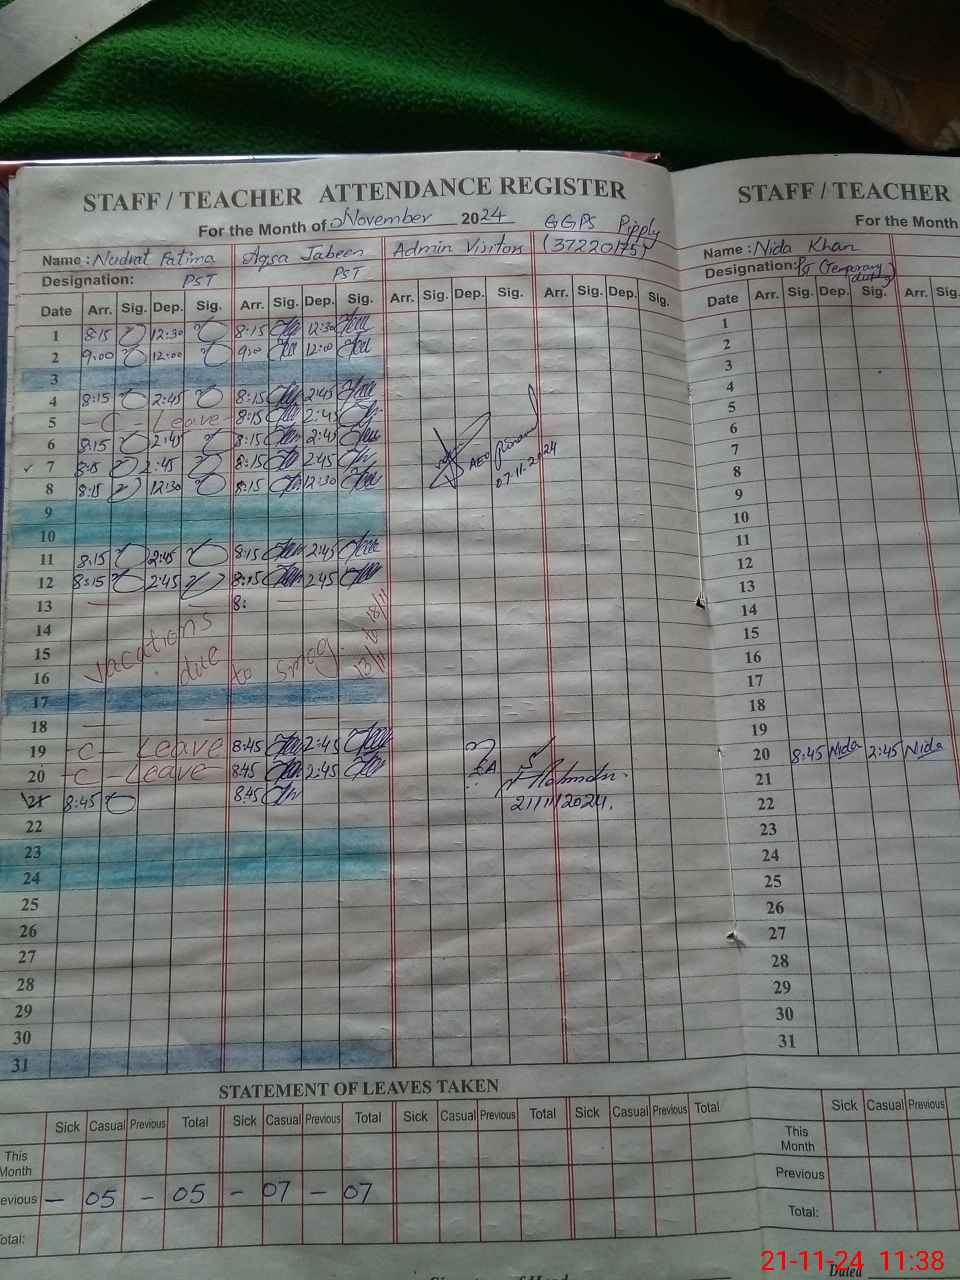 STAFF / TEACHER ATTENDANCE REGISTER
For the Month of November 2024 GGPS Pipply
(37220175)
Name : Nudrat Fatima Aqsa Jabeen Admin Visitors
Designation: PST PST
Date Arr. Sig. Dep. Sig. Arr. Sig. Dep. Sig. Arr. Sig. Dep. Sig. Arr. Sig. Dep. Sig.
1 8:15 12:30 8:15 12:30
2 9:00 12:00 9:00 12:00
3
4 8:15 2:45 8:15 2:45
5 - C - Leave - 8:15 2:45
6 8:15 2:45 8:15 2:45
7 8:15 2:45 8:15 2:45 AEO
8 8:15 12:30 8:15 12:30 07.11.2024
9
10
11 8:15 2:45 8:15 2:45
12 8:15 2:45 8:15 2:45
13 8:
14
15
16
vacations due to smog. 13/11 to 18/11
17
18
19 - C - Leave 8:45 2:45
20 - C - Leave 8:45 2:45
21 8:45 8:45
21/11/2024.
22
23
24
25
26
27
28
29
30
31
STATEMENT OF LEAVES TAKEN
Sick Casual Previous Total Sick Casual Previous Total Sick Casual Previous Total Sick Casual Previous Total
This
Month
evious - 05 - 05 - 07 - 07
otal:
STAFF / TEACHER
For the Month
Name : Nida Khan
Designation: PST (Temporary
duty)
Date Arr. Sig. Dep. Sig. Arr. Sig.
1
2
3
4
5
6
7
8
9
10
11
12
13
14
15
16
17
18
19
20 8:45 Nida 2:45 Nida
21
22
23
24
25
26
27
28
29
30
31
Sick Casual Previous
This
Month
Previous
Total:
Dated
21-11-24 11:38